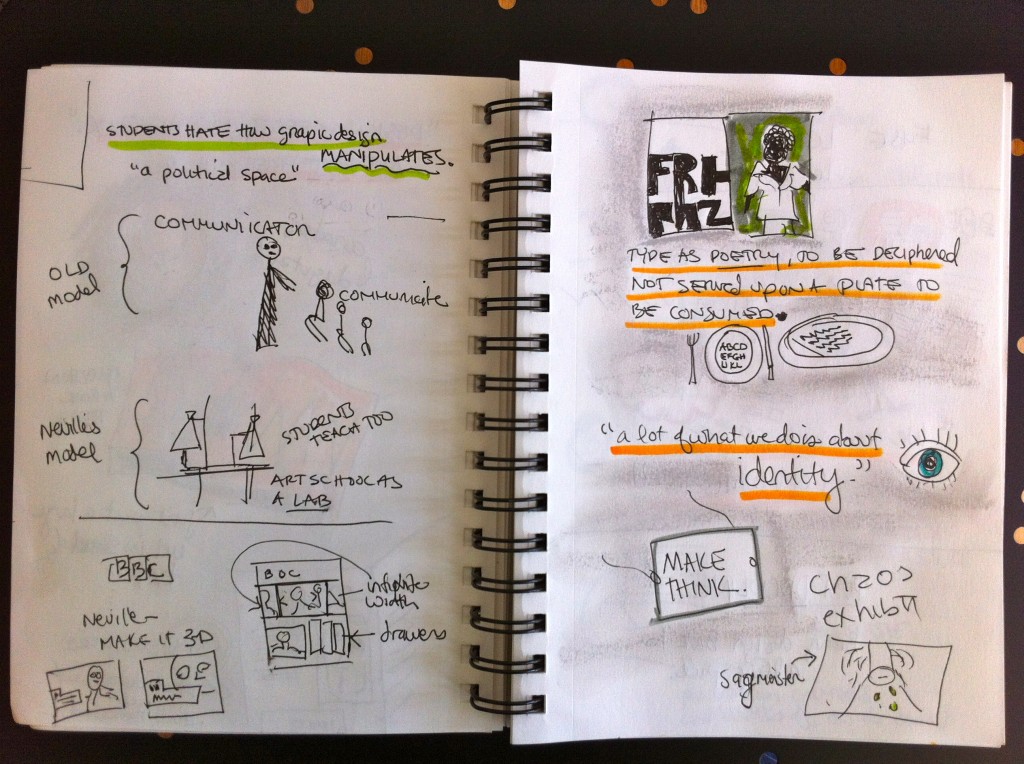 STUDENTS HATE HOW grapic design
MANIPULATES.
"a political space"
OLD
model
COMMUNICATOR
COMMUNICATE
Neville's
model
STUDENTS
TEACH TOO
ART SCHOOL AS
A LAB
BBC
Neville
MAKE IT 3D
infinite
width
drawers
FRH
TYPE AS POETRY, TO BE DECIPHERED
NOT SERVED UPON A PLATE TO
BE CONSUMED.
ABCD
EFGH
"a lot of what we do is about
identity."
MAKE
THINK.
chaos
exhibit
sagmeister